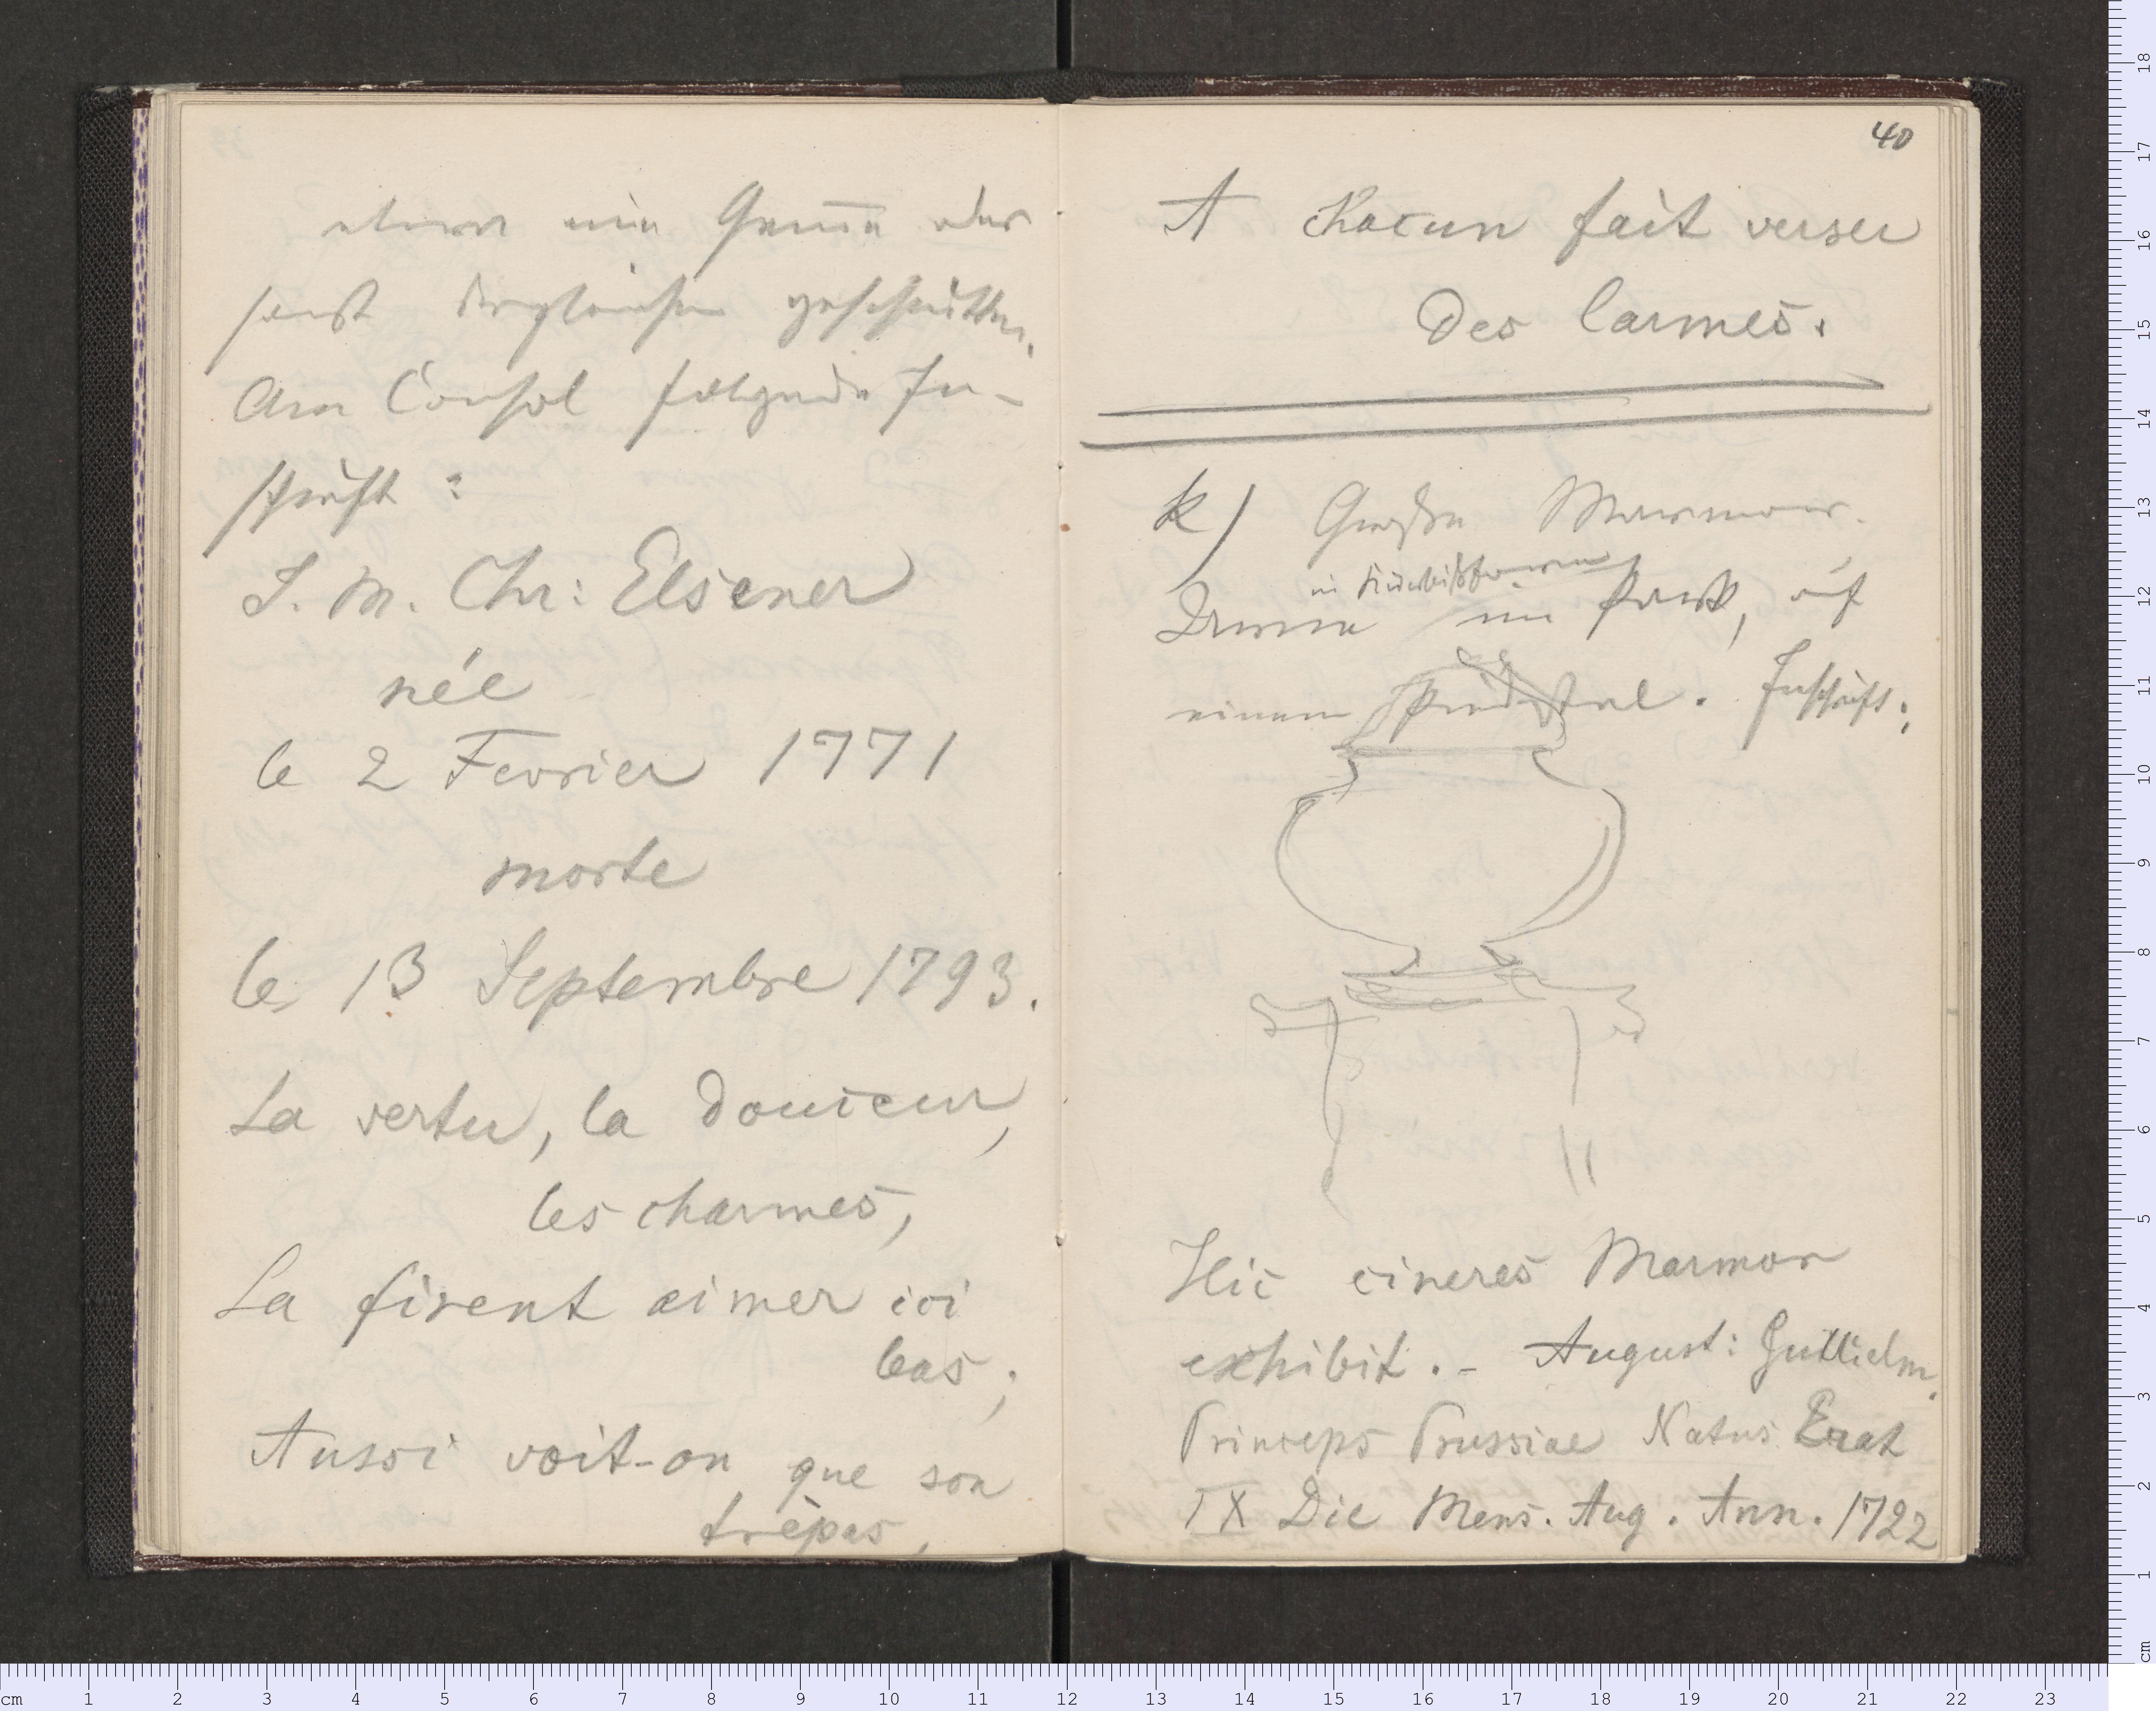 etwa eine Gemme oder
sonst dergleichen geschnitten.
Am Consol folgende In-
schrift:
S. M. Chr: Elsener
née
le 2 Fevrier 1771
morte
le 13 Septembre 1793.
La vertu, la douceur,
les charmes,
La firent aimer ici
bas;
Aussi voit-on que son
trépas,
40
A chacun fait verser
des larmes.
k) Große Marmor-
in Kürbißform
im Park, auf
einem Piedestal. Inschrift:
Hic cineres Marmor
exhibit. - August: Guilielm.
Princeps Prussiae Natus Erat
IX Die Mens. Aug. Ann. 1722